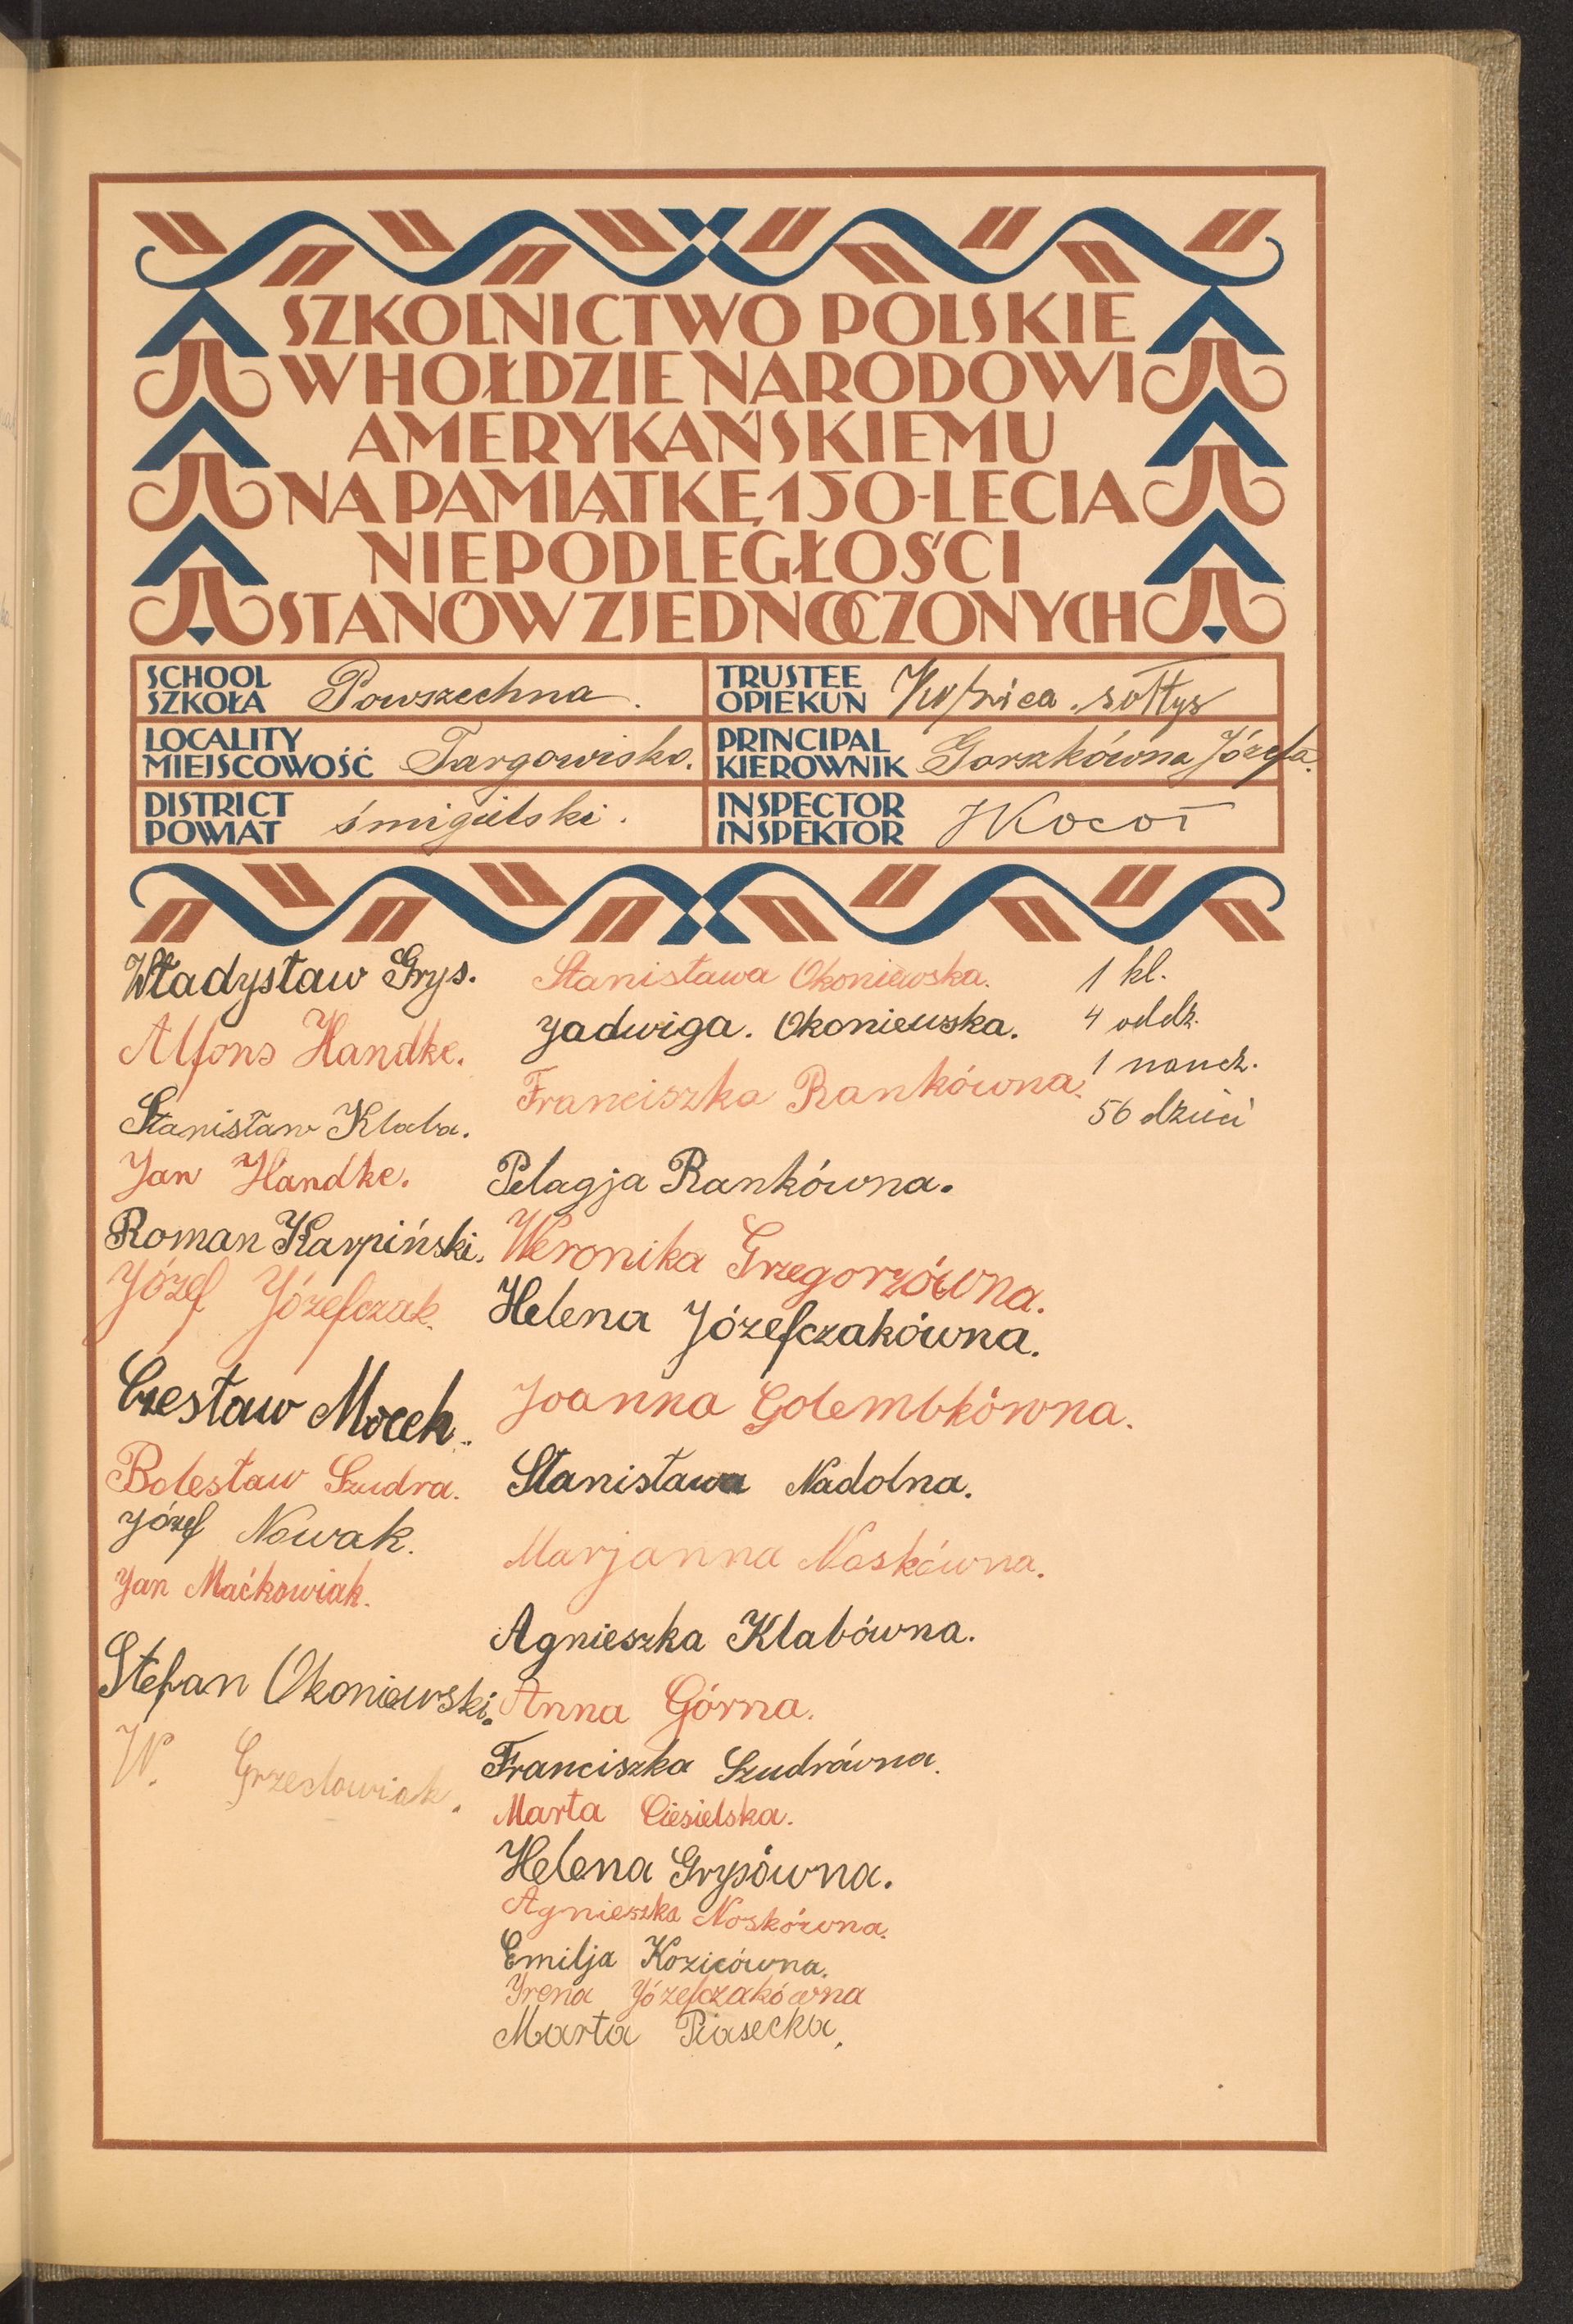 SZKOLNICTWO POLSKIE
W HOŁDZIE NARODOWI
AMERYKAŃSKIEMU
NA PAMIĄTKĘ 150-LECIA
NIEPODLEGŁOŚCI
STANÓW ZJEDNOCZONYCH
SCHOOL
SZKOŁA Powszechna.
TRUSTEE
OPIEKUN sołtys
LOCALITY
MIEJSCOWOŚĆ Targowisko.
PRINCIPAL
KIEROWNIK Gorszkówna Józefa.
DISTRICT
POWIAT śmigielski.
INSPECTOR
INSPEKTOR Kocoł
Władysław Grys.
Alfons Handke.
Stanisław Klaba.
Jan Handke.
Roman Karpiński.
Józef Józefczak.
Czesław Mocek.
Bolesław Szudra.
Józef Nowak.
Jan Maćkowiak.
Stefan Okoniewski.
W. Grześkowiak.
Stanisława Okoniewska.
Jadwiga. Okoniewska.
Franciszka Rankówna.
Pelagja Rankówna.
Weronika Grzegorzówna.
Helena Józefczakówna.
Joanna Golembkówna.
Stanisława Nadolna.
Marjanna Noskówna.
Agnieszka Klabówna.
Anna Górna.
Franciszka Szudrówna.
Marta Ciesielska.
Helena Grysówna.
Agnieszka Noskówna.
Emilja Kozicówna.
Irena Józefczakówna
Marta Piasecka.
1 kl.
4 oddz.
1 naucz.
56 dzieci